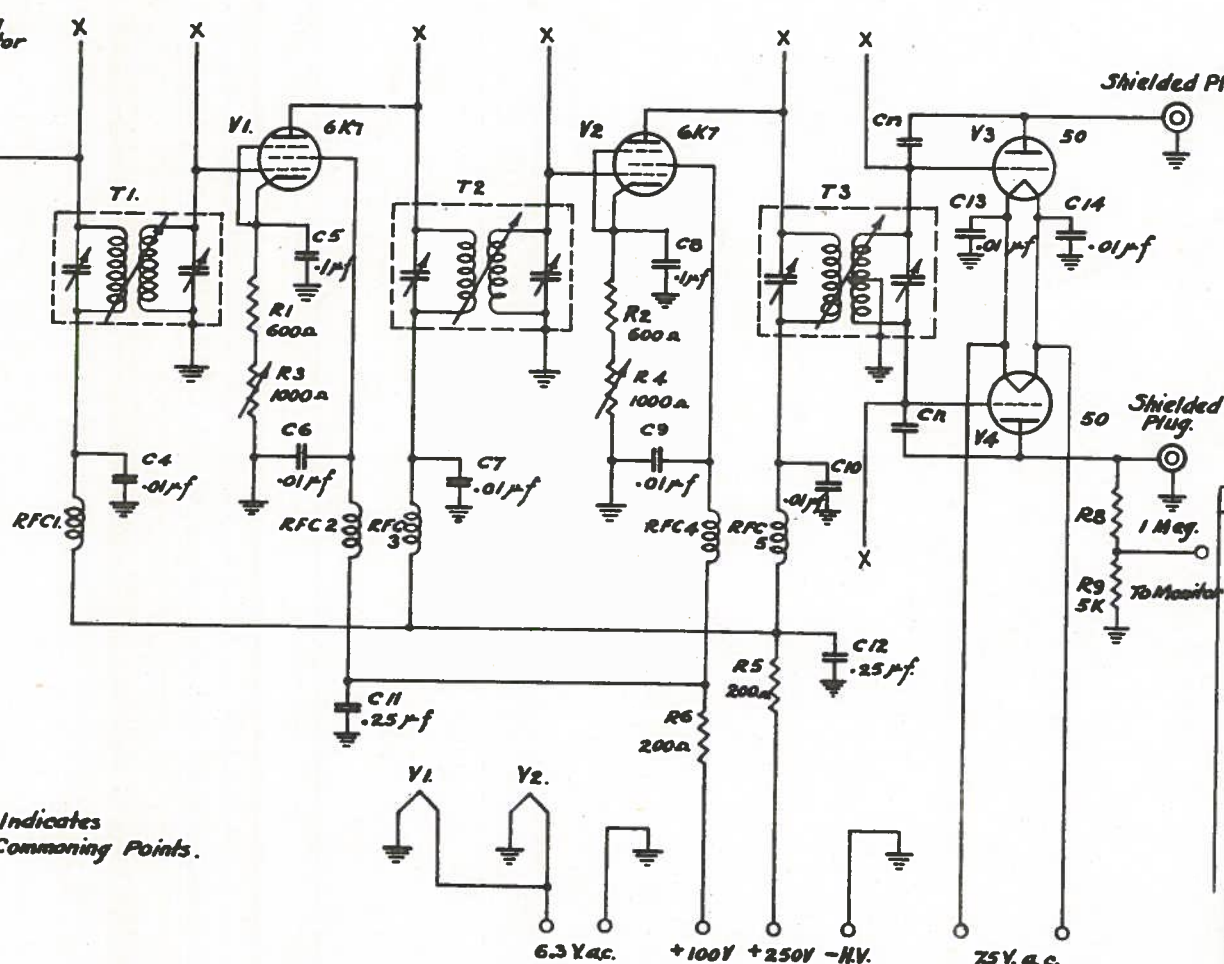 tor
X
X
X
X
X
X
Shielded Pl
V1.
6K7
V2
6K7
Cn
V3
50
T1.
T2
T3
C13
C14
.01µf
.01µf
C5
.1µf
C8
.1µf
R1
600Ω
R2
600Ω
R3
1000Ω
R4
1000Ω
Cn
V4
50
Shielded
Plug.
C4
.01µf
C6
.01µf
C7
.01µf
C9
.01µf
C10
.01µf
RFC1.
RFC2
RFC
3
RFC4
RFC
5
X
R8
1 Meg.
R9
5K
To Monitor
C12
.25µf.
R5
200Ω
C11
.25µf
R6
200Ω
V1.
V2.
Indicates
Commoning Points.
6.3 V.a.c.
+100V
+250V
-H.V.
7.5 V.a.c.